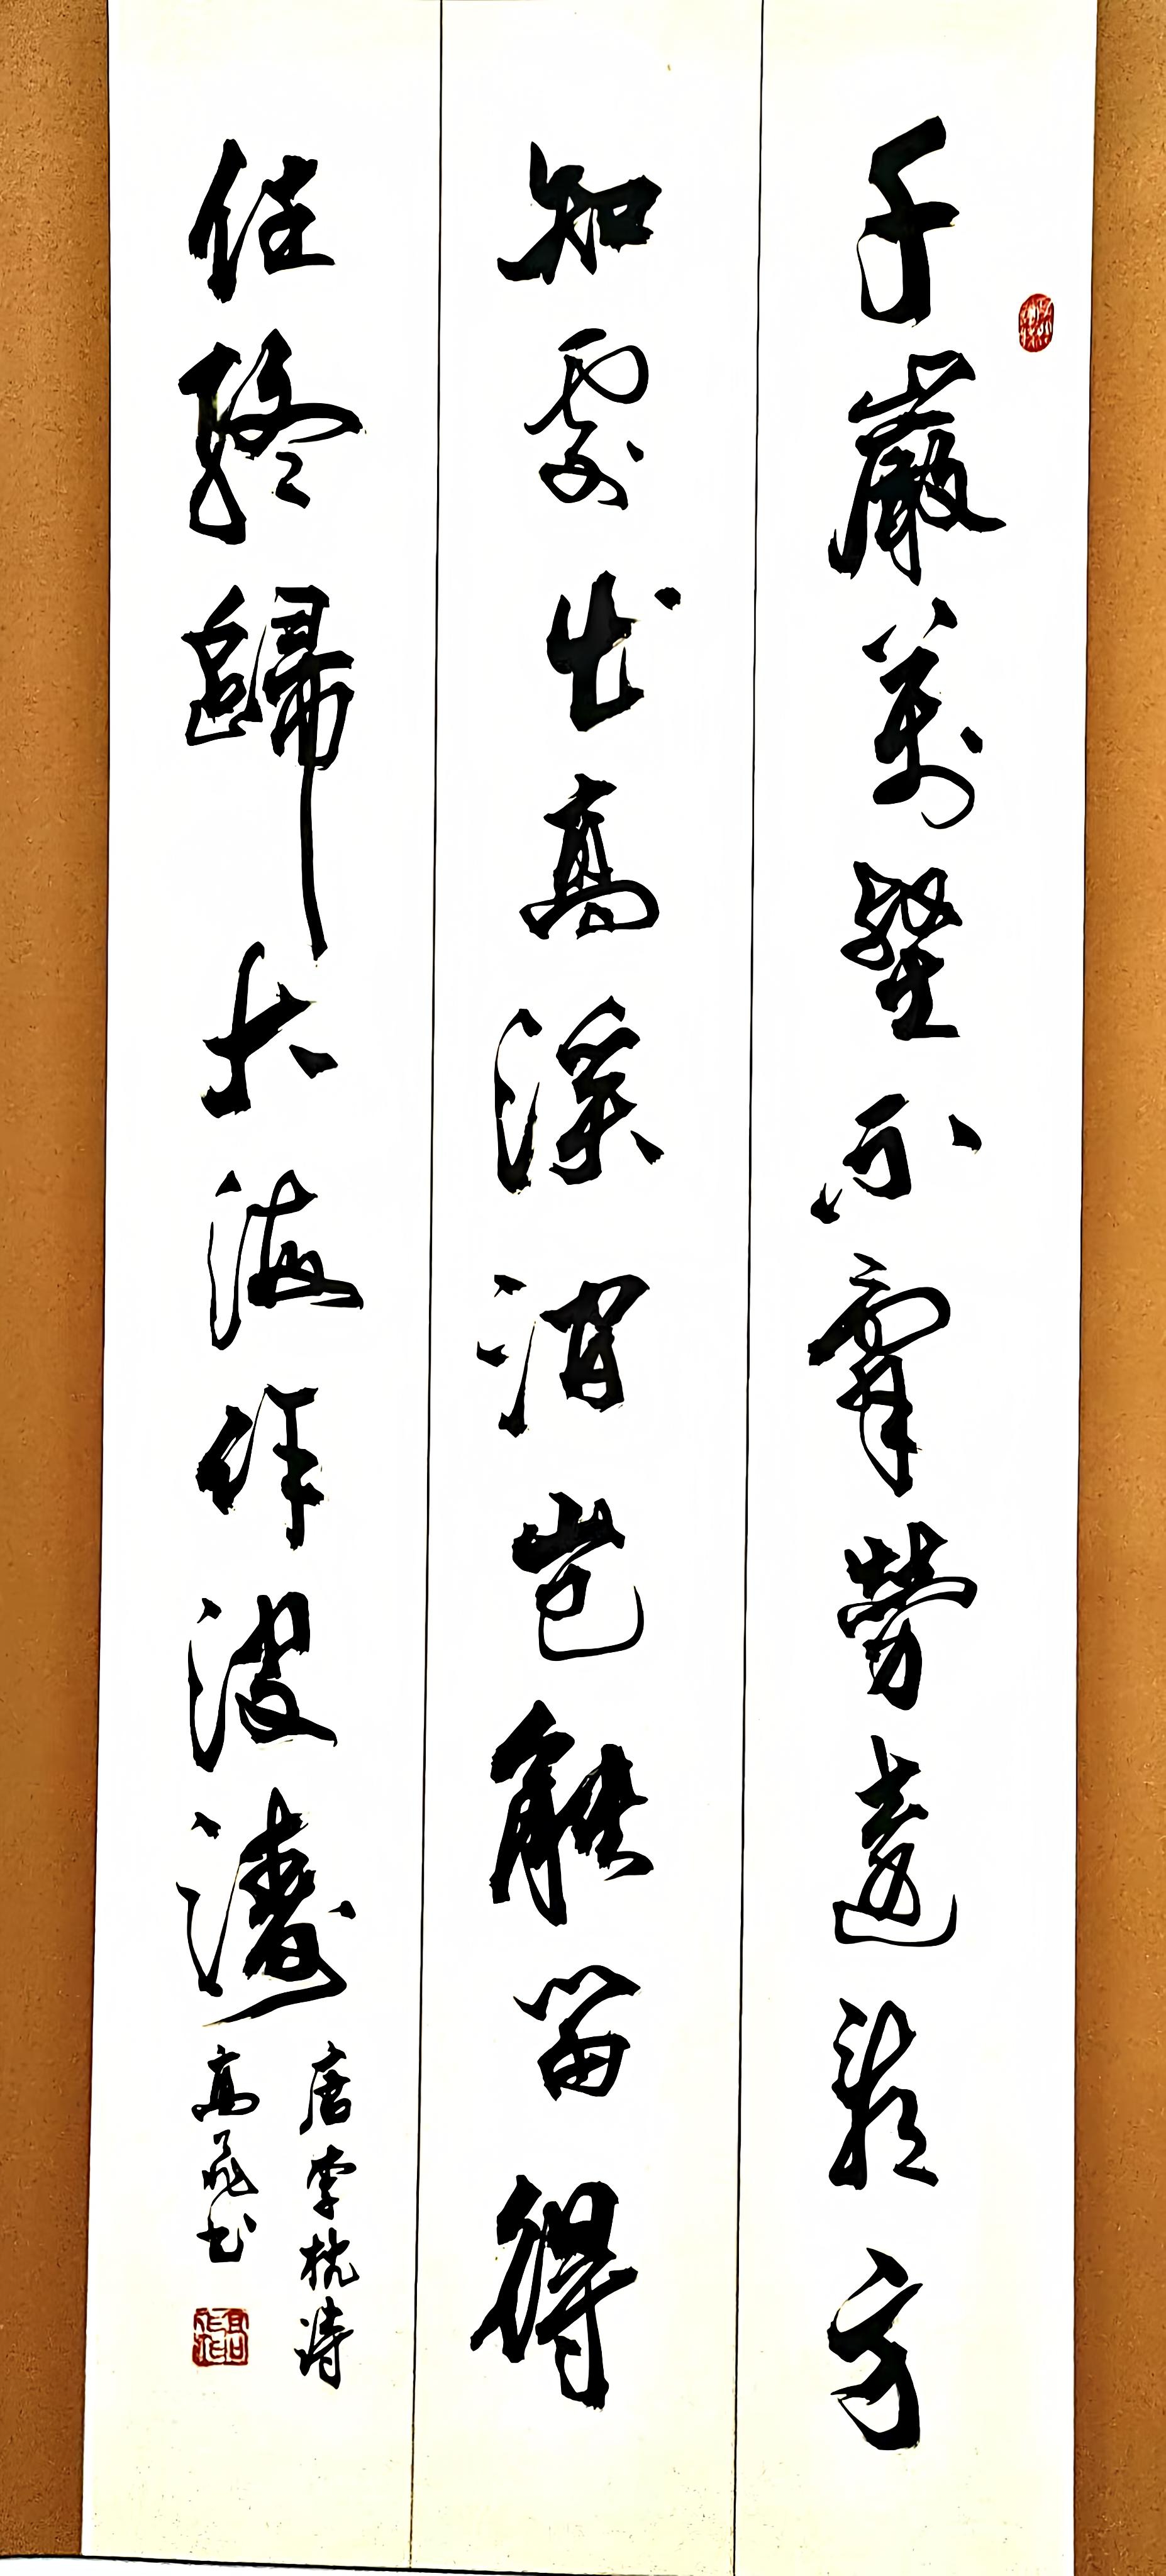 千巖萬壑不辭勞遠方
知處出高溪澗豈能留得
住終歸大海作波濤
唐李忱詩
高飛书